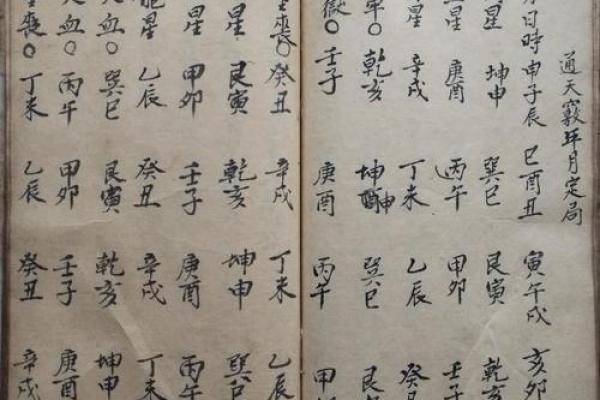 通天竅年月定局
日時申子辰 巳酉丑 寅午戌 亥卯
星 坤申 巽巳 艮寅 乾亥
星 庚酉 丙午 甲卯 壬子
星 辛戌 丁未 乙辰 癸丑
○ 乾亥 坤申 巽巳 艮寅
獄○ 壬子 庚酉 丙午 甲
喪○ 癸丑 辛戌 丁未 乙辰
星 艮寅 乾亥 坤申 巽巳
星 甲卯 壬子 庚酉 丙午
星 乙辰 癸丑 辛戌 丁未
血○ 巽巳 艮寅 乾亥 坤申
血○ 丙午 甲卯 壬子 庚酉
喪○ 丁未 乙辰 癸丑 辛戌